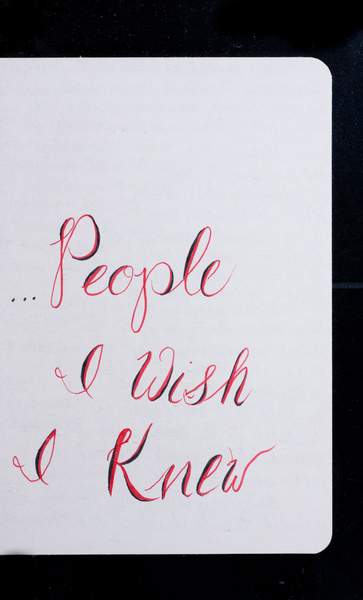 ...People
I Wish
I Knew